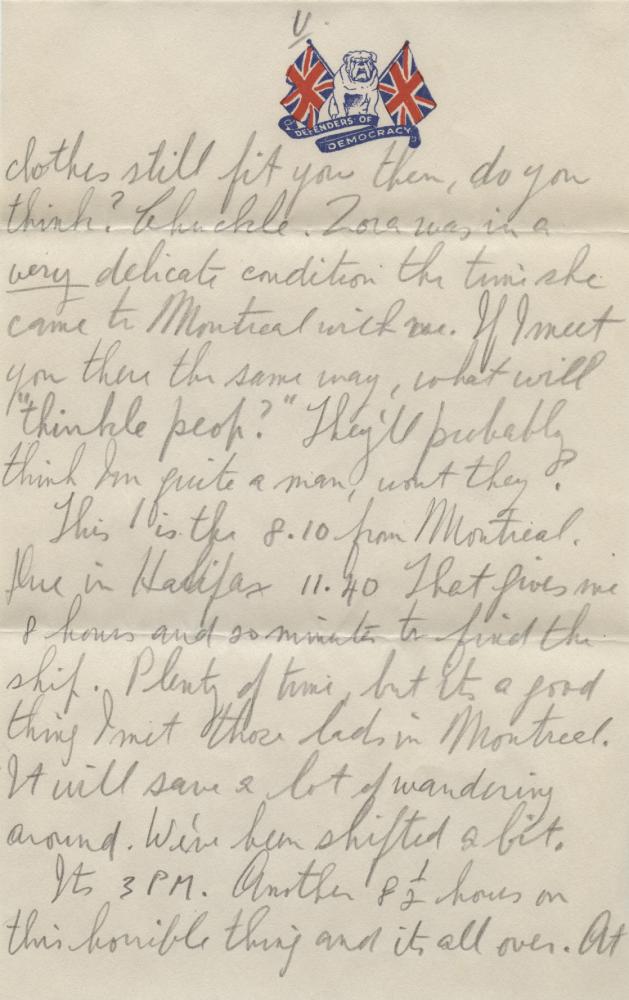 V.
DEFENDERS OF
DEMOCRACY
clothes still fit you then, do you
think? Chuckle. Zora was in a
very delicate condition the time she
came to Montreal with me. If I meet
you there the same way, what will
"thinkle peop?" They'll probably
think Im quite a man, wont they?
This is the 8.10 from Montreal.
Due in Halifax 11.40 That gives me
8 hours and 20 minutes to find the
ship. Plenty of time, but its a good
thing I met those lads in Montreal.
It will save a lot of wandering
around. We've been shifted a bit.
Its 3 PM. Another 8½ hours on
this horrible thing and its all over. At